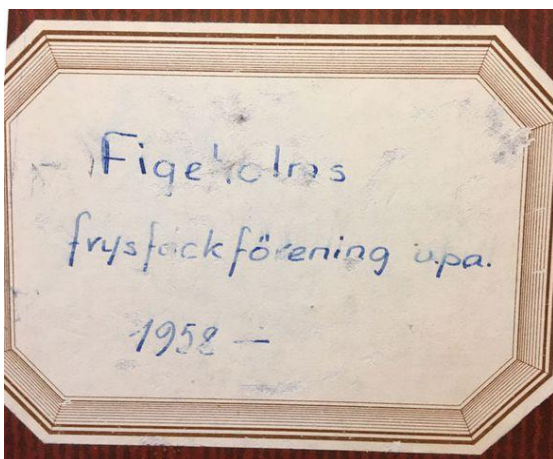 Figeholms
frysfackförening u.p.a.
1958 —